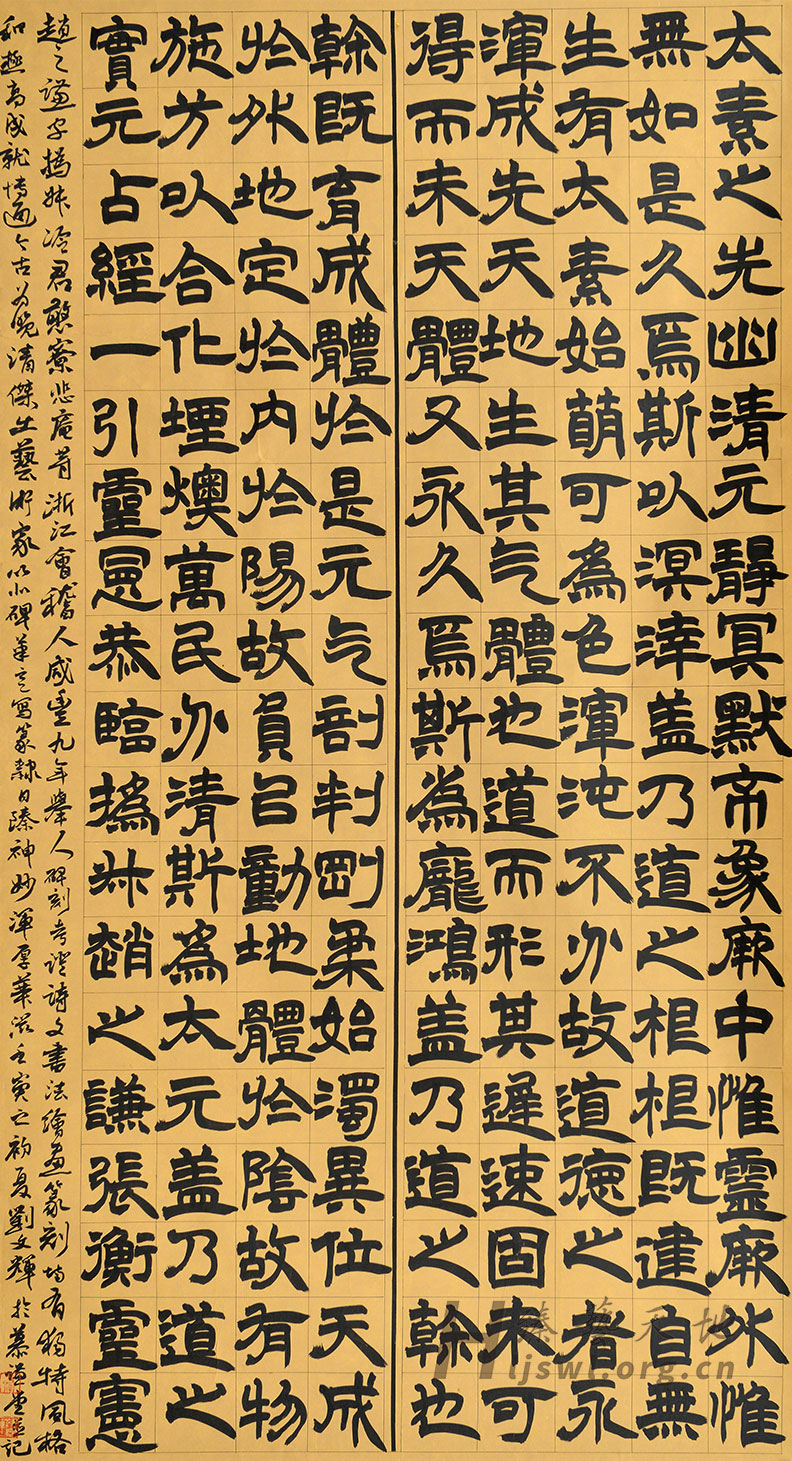 太素之先幽清元靜冥默帝象厥中惟靈厥外惟
無如是久焉斯㕥溟涬盖乃道之根根既建自無
生有太素始萌可為色渾沌不分故道德之者永
渾成先天地生其气體也道而形其遲速固未可
得而未天體又永久焉斯為龐鴻盖乃道之榦也
榦既育成體於是元气剖判剛柔始濁異位天成
於外地定於内於陽故員㠯動地體於陰故有物
施芳㕥合化堙燠萬民分清斯為太元盖乃道之
實元占經一引靈憲恭臨撝叔趙之謙張衡靈憲
趙之謙字撝叔冷君憨寮悲庵等浙江會稽人咸豐九年舉人碑刻考證詩文書法繪畫篆刻均有獨特風格
和極高成就博通今古為晚清傑出藝術家以北碑筆意寫篆隸日臻神妙渾厚華滋壬寅之初夏劉文輝於慕謙堂并記
臻藝天地
tjswl.org.cn